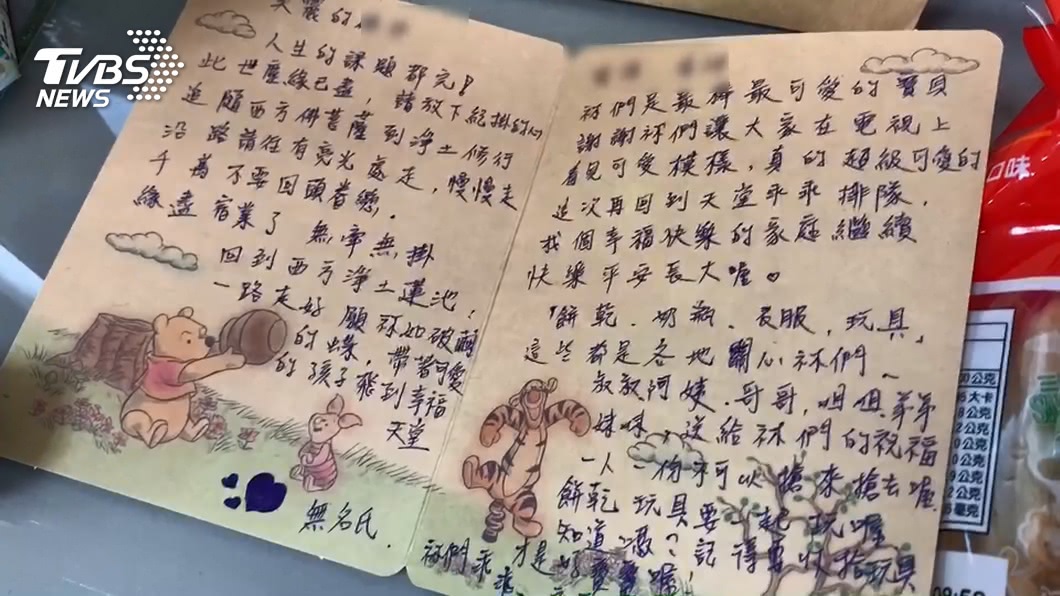 TVBS
NEWS
美麗的
人生的課題都完了
此世塵緣已盡，請放下紀掛的心
追隨西方佛菩薩到淨土修行
沿路請往有亮光處走，慢慢走
千萬不要回頭眷戀.
緣盡宿業了 無牽無掛
回到西方淨土蓮池，
一路走好 願祢如破繭
的蝶，帶著可愛
的孩子飛到幸福
天堂
無名氏.
祢們是最棒最可愛的寶貝
謝謝祢們讓大家在電視上
看見可愛模樣，真的超級可愛的
這次再回到天堂乖乖排隊，
找個幸福快樂的家庭繼續
快樂平安長大喔
「餅乾．奶瓶．衣服，玩具」
這些都是各地關心祢們、
叔叔阿姨．哥哥，姐姐 弟弟
妹妹，送給祢們的祝福
一人一份不可以搶來搶去喔
餅乾 玩具要一起玩喔
知道嗎？記得要收拾玩具
祢們乖乖 才是好寶寶喔，
口味
公克
大卡
公克
公克
公克
公克
公克
毫克